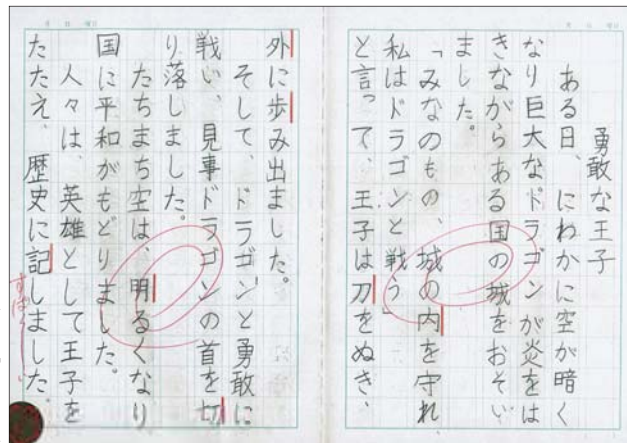 勇敢な王子
ある日、にわかに空が暗く
なり巨大なドラゴンが炎をは
きながらある国の城をおそい
ました。
「みなのもの、城の内を守れ、
私はドラゴンと戦う」
と言って、王子は刀をぬき、
外に歩み出ました。
そして、ドラゴンと勇敢に
戦い、見事ドラゴンの首を切
り落しました。
たちまち空は、明るくなり
国に平和がもどりました。
人々は、英雄として王子を
たたえ、歴史に記しました。
すばらしい